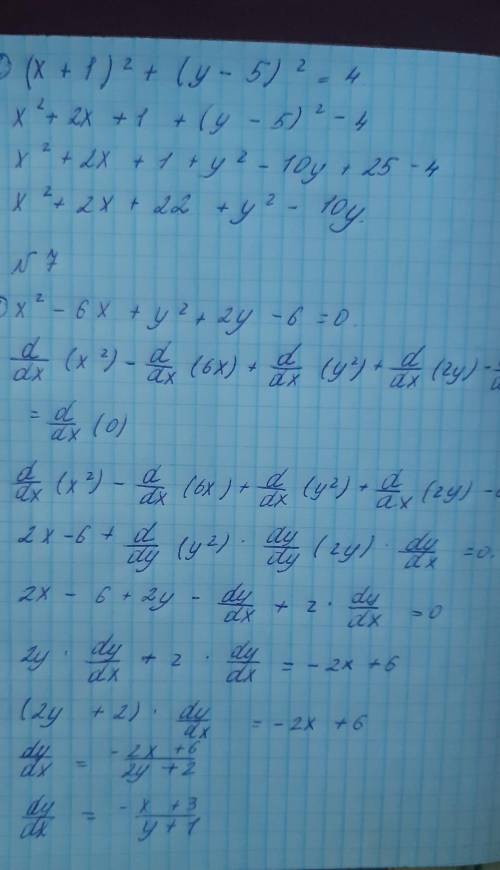 (x + 1)² + (y - 5)² = 4
x² + 2x + 1 + (y - 5)² - 4
x² + 2x + 1 + y² - 10y + 25 - 4
x² + 2x + 22 + y² - 10y.
N 7
x² - 6x + y² + 2y - 6 = 0.
d/dx (x²) - d/dx (6x) + d/dx (y²) + d/dx (2y) -
= d/dx (0)
d/dx (x²) - d/dx (6x) + d/dx (y²) + d/dx (2y) -
2x - 6 + d/dy (y²) · dy/dy (2y) · dy/dx = 0.
2x - 6 + 2y - dy/dx + 2 · dy/dx = 0
2y · dy/dx + 2 · dy/dx = -2x + 6
(2y + 2) · dy/dx = -2x + 6
dy/dx = -2x + 6/2y + 2
dy/dx = -x + 3/y + 1